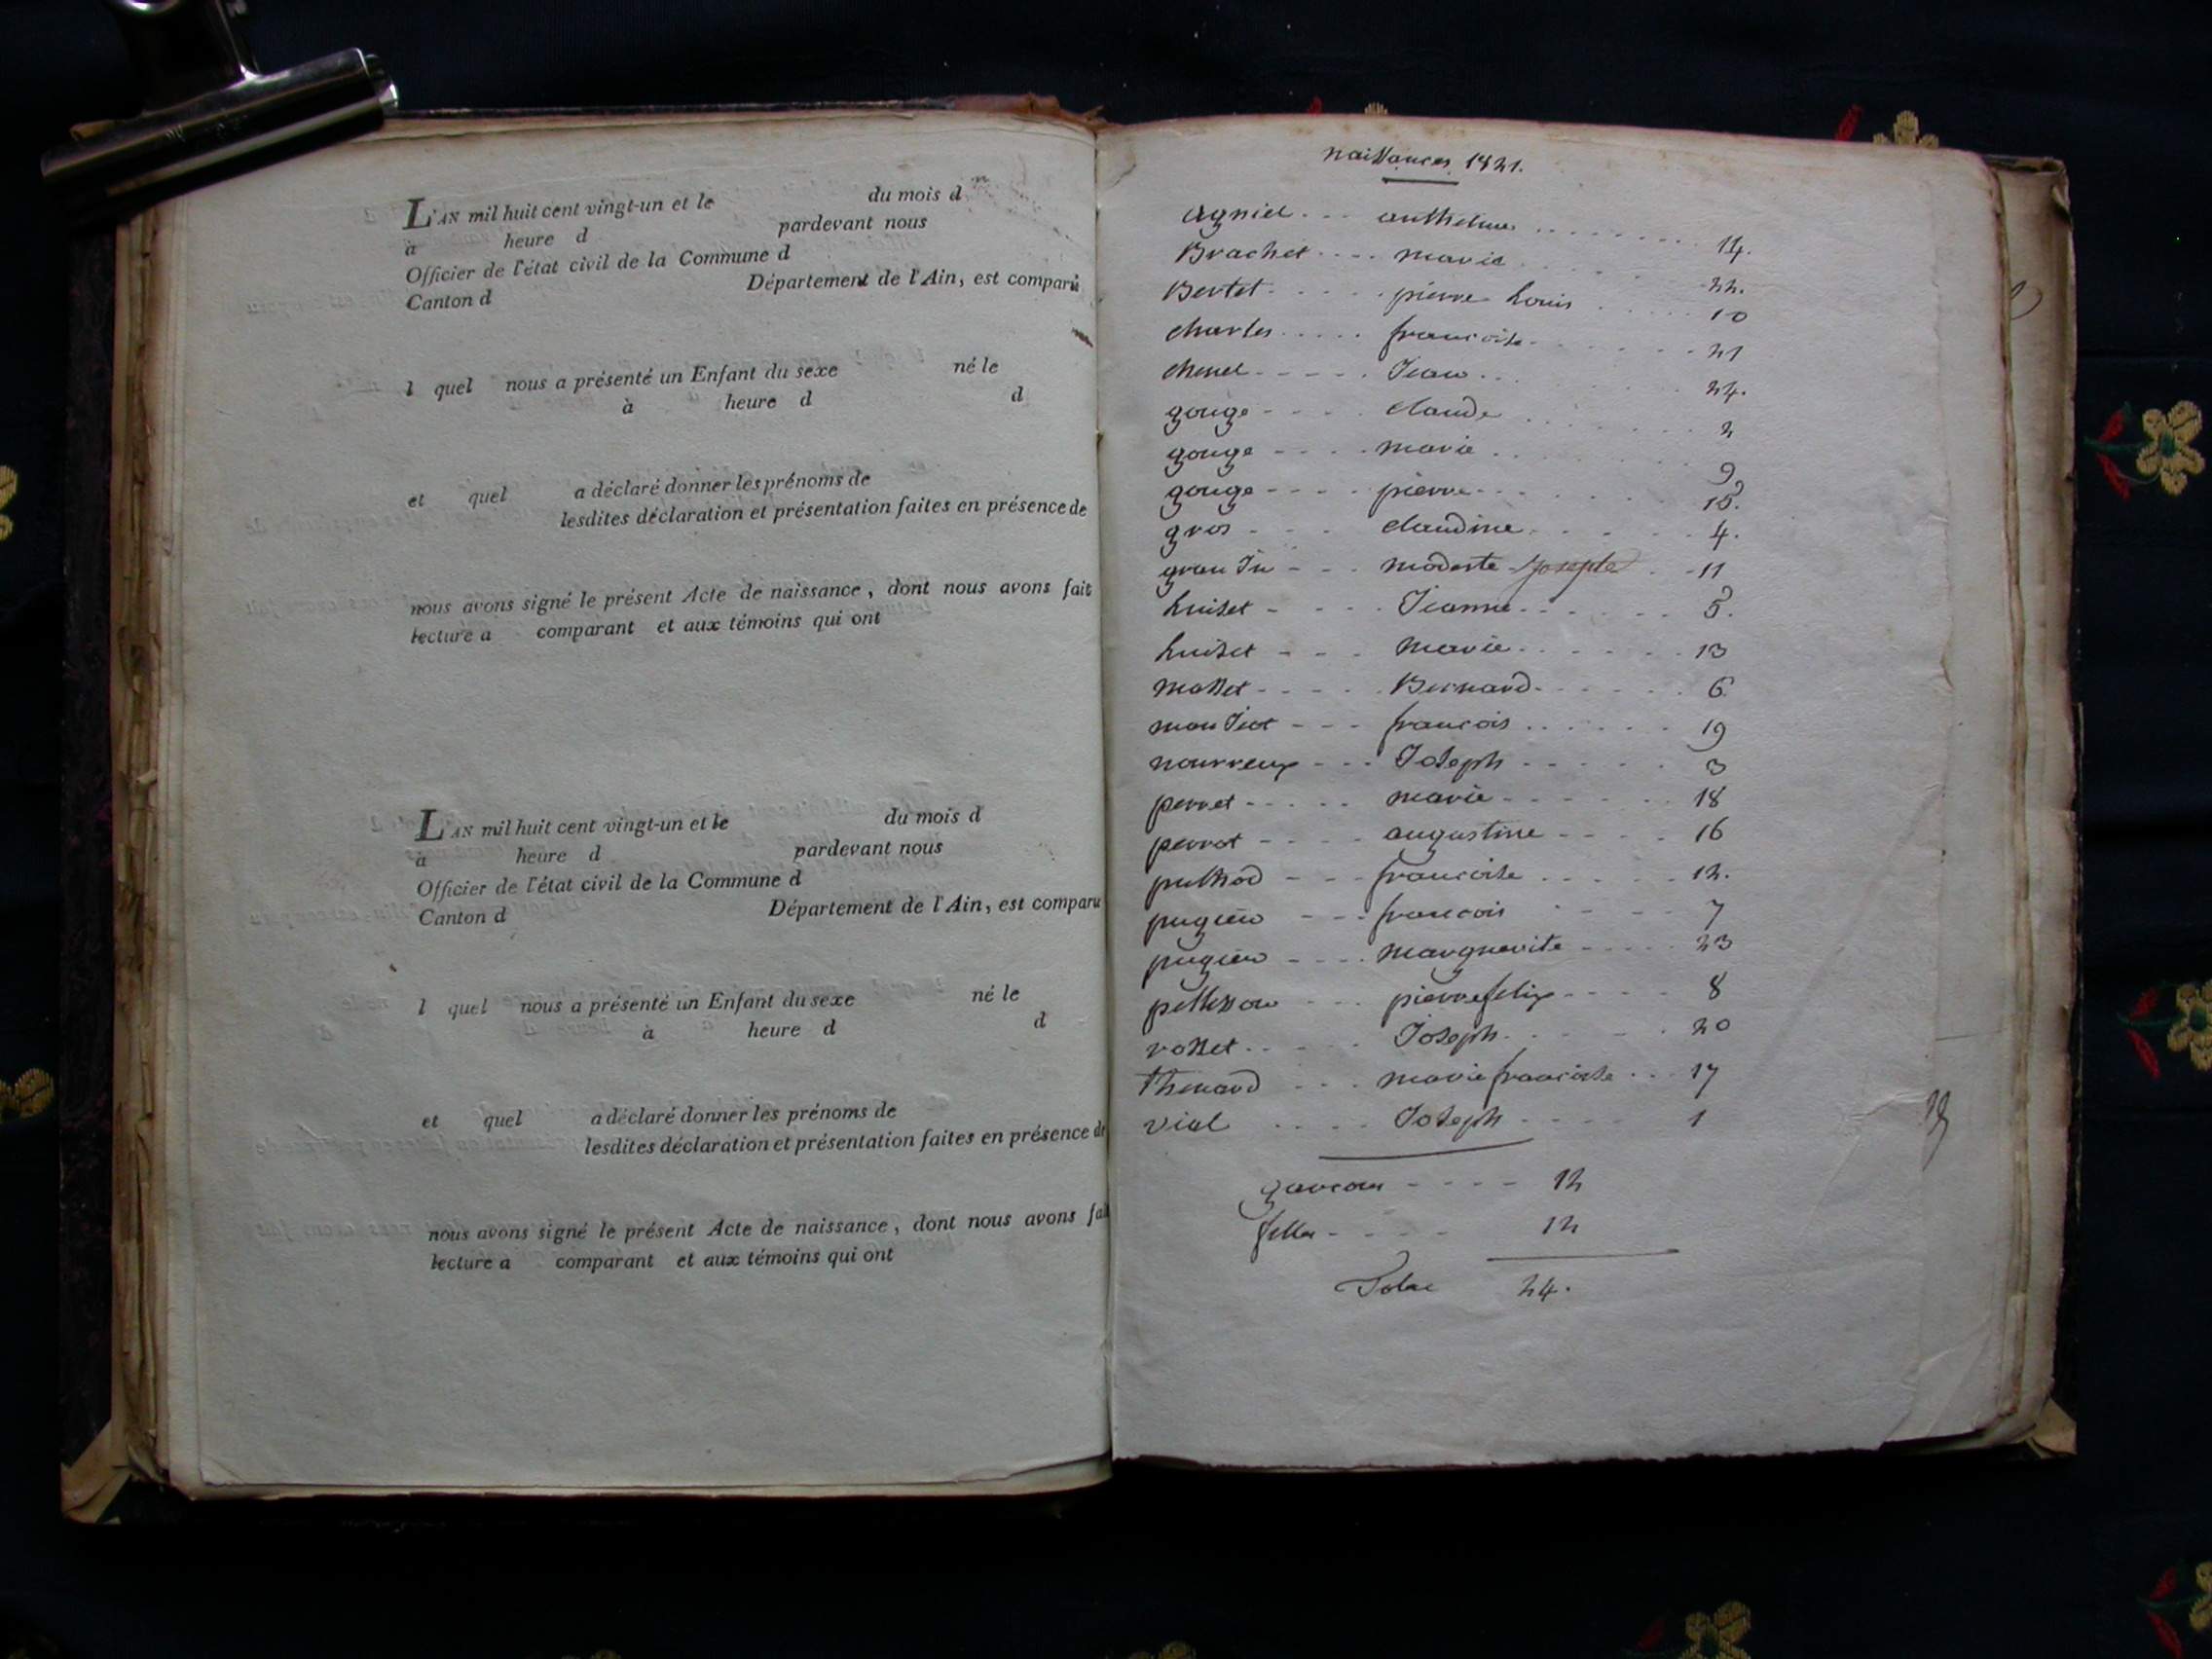 L'AN mil huit cent vingt-un et le du mois d
à heure d pardevant nous
Officier de l'état civil de la Commune d
Canton d Département de l'Ain, est comparu
l quel nous a présenté un Enfant du sexe né le
à heure d d
et quel a déclaré donner les prénoms de
lesdites déclaration et présentation faites en présence de
nous avons signé le présent Acte de naissance, dont nous avons fait
lecture a comparant et aux témoins qui ont
L'AN mil huit cent vingt-un et le du mois d
à heure d pardevant nous
Officier de l'état civil de la Commune d
Canton d Département de l'Ain, est comparu
l quel nous a présenté un Enfant du sexe né le
à heure d d
et quel a déclaré donner les prénoms de
lesdites déclaration et présentation faites en présence de
nous avons signé le présent Acte de naissance, dont nous avons fait
lecture a comparant et aux témoins qui ont
naissances 1821.
agniel anthelme 14.
Brachet marie 22.
Bertet pierre Louis 10
charles francoise 21
chenel Jean 24.
gouge claude 2
gouge marie 9
gouge pierre 15.
gros claudine 4.
modeste Josephe 11
Luiset Jeanne 5.
Luiset marie 13
mosset Bernard 6
francois 19
nourreux Joseph 3
perret marie 18
perrot augustine 16
francoise 12.
pugieu francois 7
pugieu marguerite 23
pellisson pierre felix 8
rosset Joseph 20
thenard marie francoise 17
vial Joseph 1
garcons 12
filles 12
Total 24.